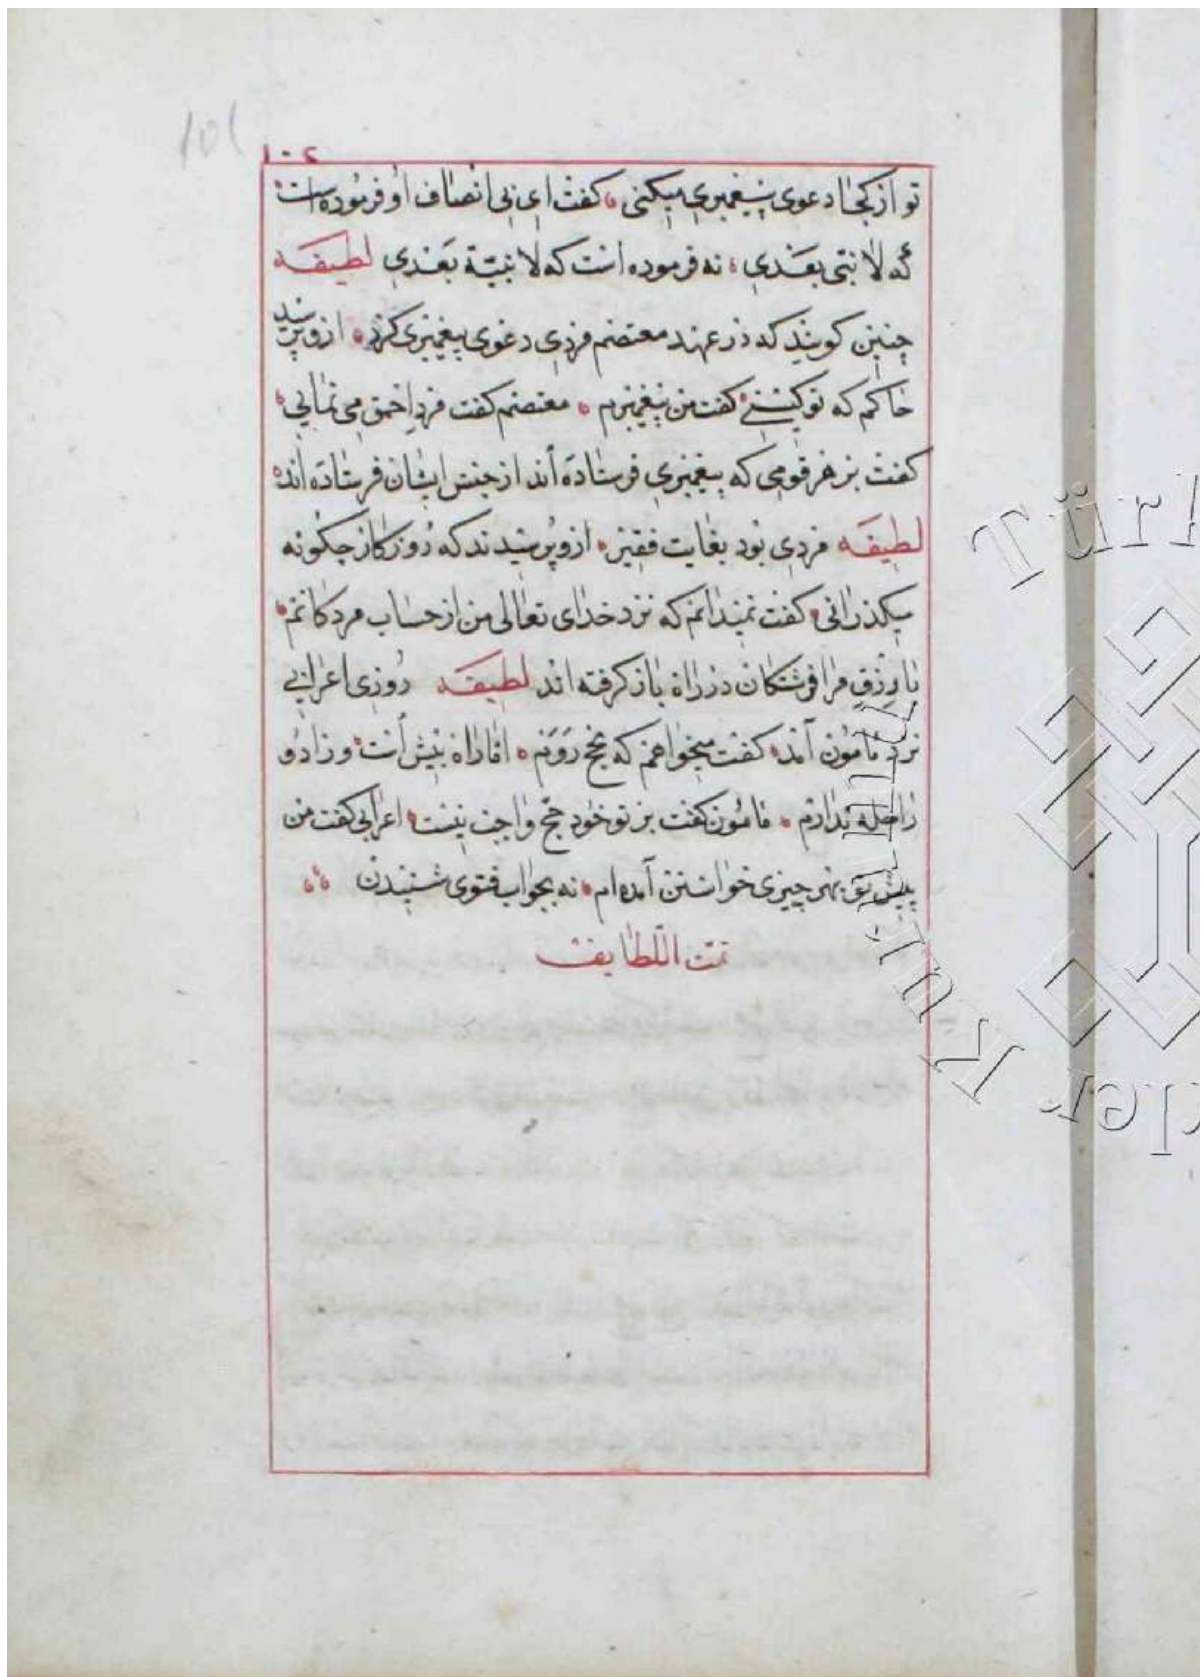 101
۱۰۲
تو از کجا دعوی پیغمبری میکنی کفت ای بی انصاف او فرموده است
که لا نبی بعدی نه فرموده است که لا نبیة بعدی لطیفه
چنین کویند که در عهد معتصم مردی دعوی پیغمبری کرد ازو پرسید
حاکم که تو کیستی کفت من پیغمبرم معتصم کفت مرد احمق می نمایی
کفت بر هر قومی که پیغمبری فرستاده اند از جنس ایشان فرستاده اند
لطیفه مردی بود بغایت فقیر ازو پرسیدند که روزکار چکونه
میکذرانی کفت نمیدانم که نزد خدای تعالی من از حساب مردکانم
یا رزق مرا فرشتکان در راه باز کرفته اند لطیفه روزی اعرابی
نزد مامون آمد کفت میخواهم که بحج روم اما راه پیش است و زاد و
راحله ندارم مامون کفت بر تو خود حج واجب نیست اعرابی کفت من
پیش تو بهر چیزی خواستن آمده ام نه بجواب فتوی شنیدن
تمت اللطایف
Türk